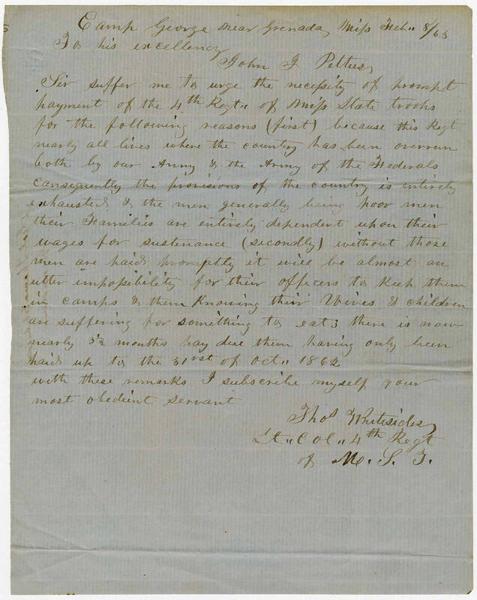 Camp George near Grenada, Miss Feb.. 8/63
To his excellency
John J Pettus,
Sir suffer me to urge the necessity of prompt
payment of the 4th Regt.. of Miss State troops
for the following reasons (first) because this Regt
nearly all lives where the country has been overrun
both by our Army & the Army of the Federals
consequently the provisions of the country is entirely
exhausted & the men generally being poor men
their Families are entirely dependent upon their
wages for sustenance (secondly) without those
men are paid promptly it will be almost an
utter impossibility for their officers to keep them
in camps & them knowing their Wives & children
are suffering for something to eat; there is now
nearly 3½ months pay due them having only been
paid up to the 31st of Oct.. 1862
with these remarks I subscribe myself your
most obedient servant
Thos Whitesides,
Lt.. Col.. 4th Regt
of M. S. T.